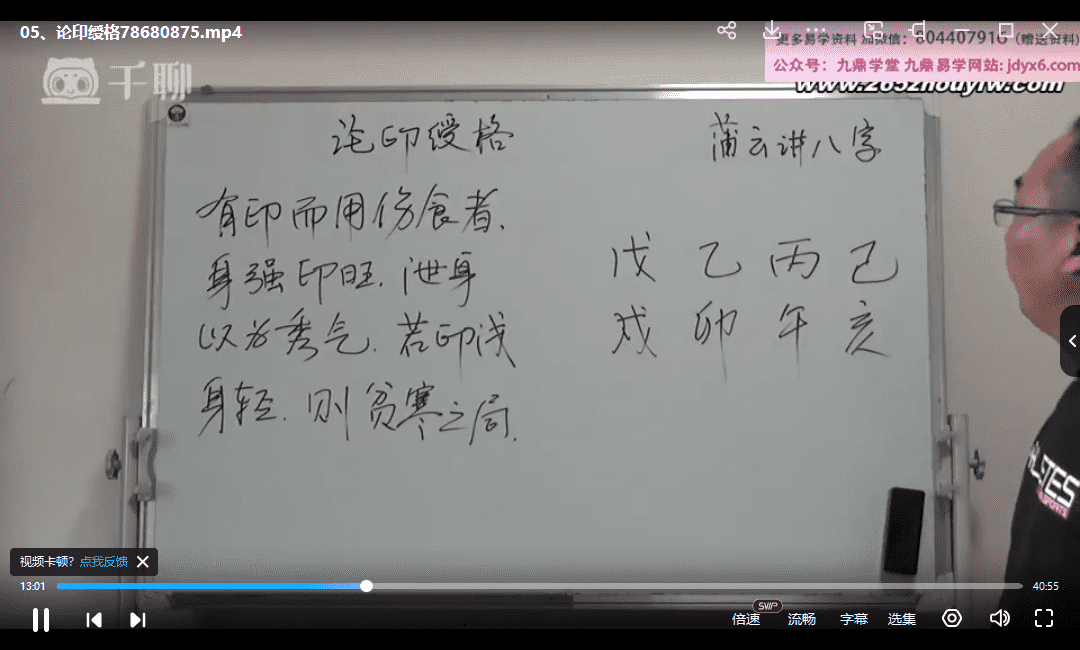 05、论印绶格78680875.mp4
更多易学资料 加微信：804407916（赠送资料）
公众号：九鼎学堂 九鼎易学网站: jdyx6.com
千聊
论印绶格
蒲云讲八字
有印而用伤食者.
身强印旺.泄身
以为秀气.若印浅
身轻.则贫寒之局.
戊 乙 丙 己
戌 卯 午 亥
视频卡顿? 点我反馈
13:01
40:55
倍速
SVIP
流畅
字幕
选集